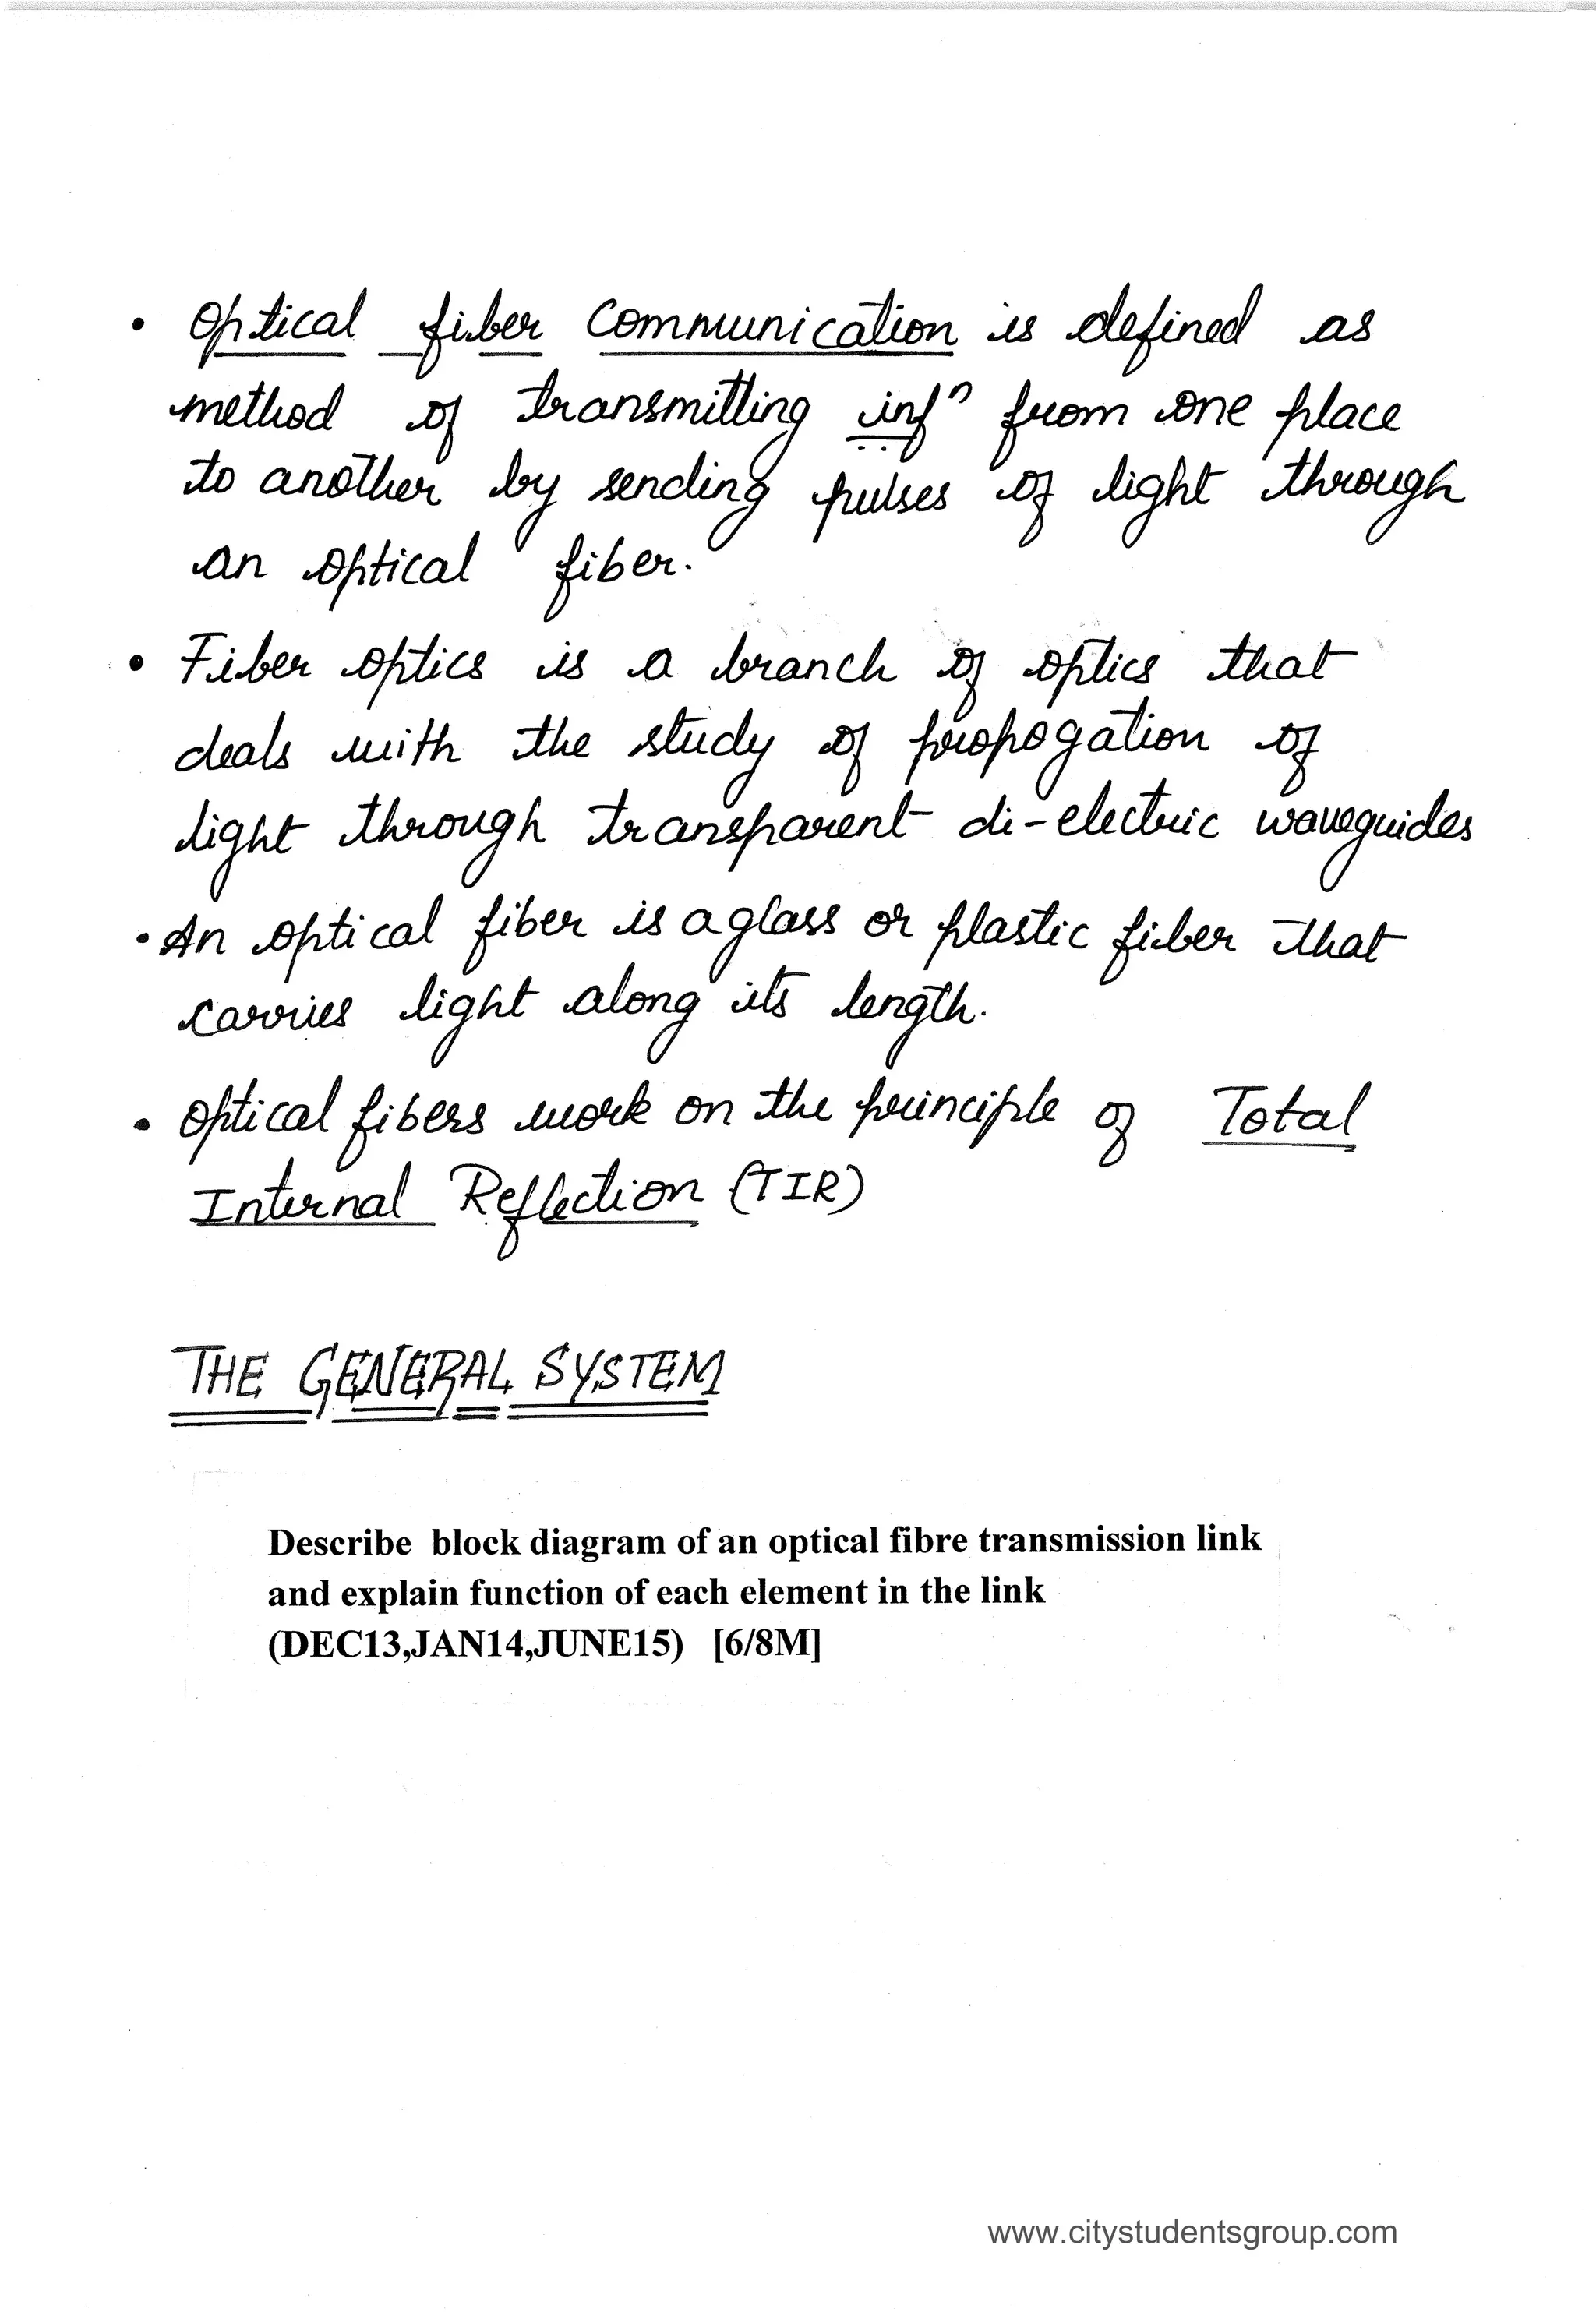 • Optical fiber communication is defined as
method of transmitting infⁿ from one place
to another by sending pulses of light through
an optical fiber.
• Fiber optics is a branch of optics that
deals with the study of propogation of
light through transparent di-electric waveguides
• An optical fiber is a glass or plastic fiber that
carries light along its length.
• Optical fibers work on the principle of Total
Internal Reflection (TIR)
THE GENERAL SYSTEM
Describe block diagram of an optical fibre transmission link
and explain function of each element in the link
(DEC13,JAN14,JUNE15) [6/8M]
www.citystudentsgroup.com